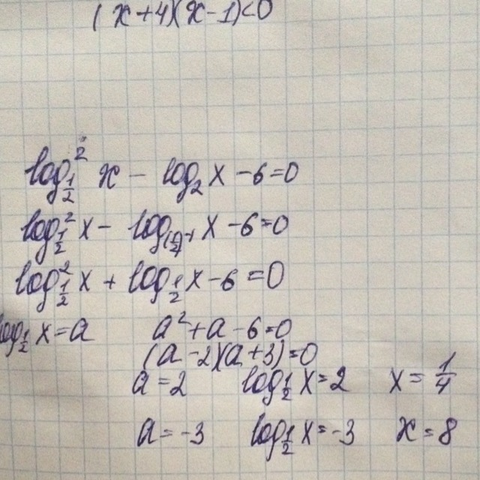 (x+4)(x-1)<0
log²_{1/2} x - log₂ x - 6=0
log²_{1/2} x - log_{(1/2)^{-1}} x - 6=0
log²_{1/2} x + log_{1/2} x - 6=0
log_{1/2} x = a   a²+a-6=0
(a-2)(a+3)=0
a=2   log_{1/2} x=2   x=1/4
a=-3   log_{1/2} x=-3   x=8